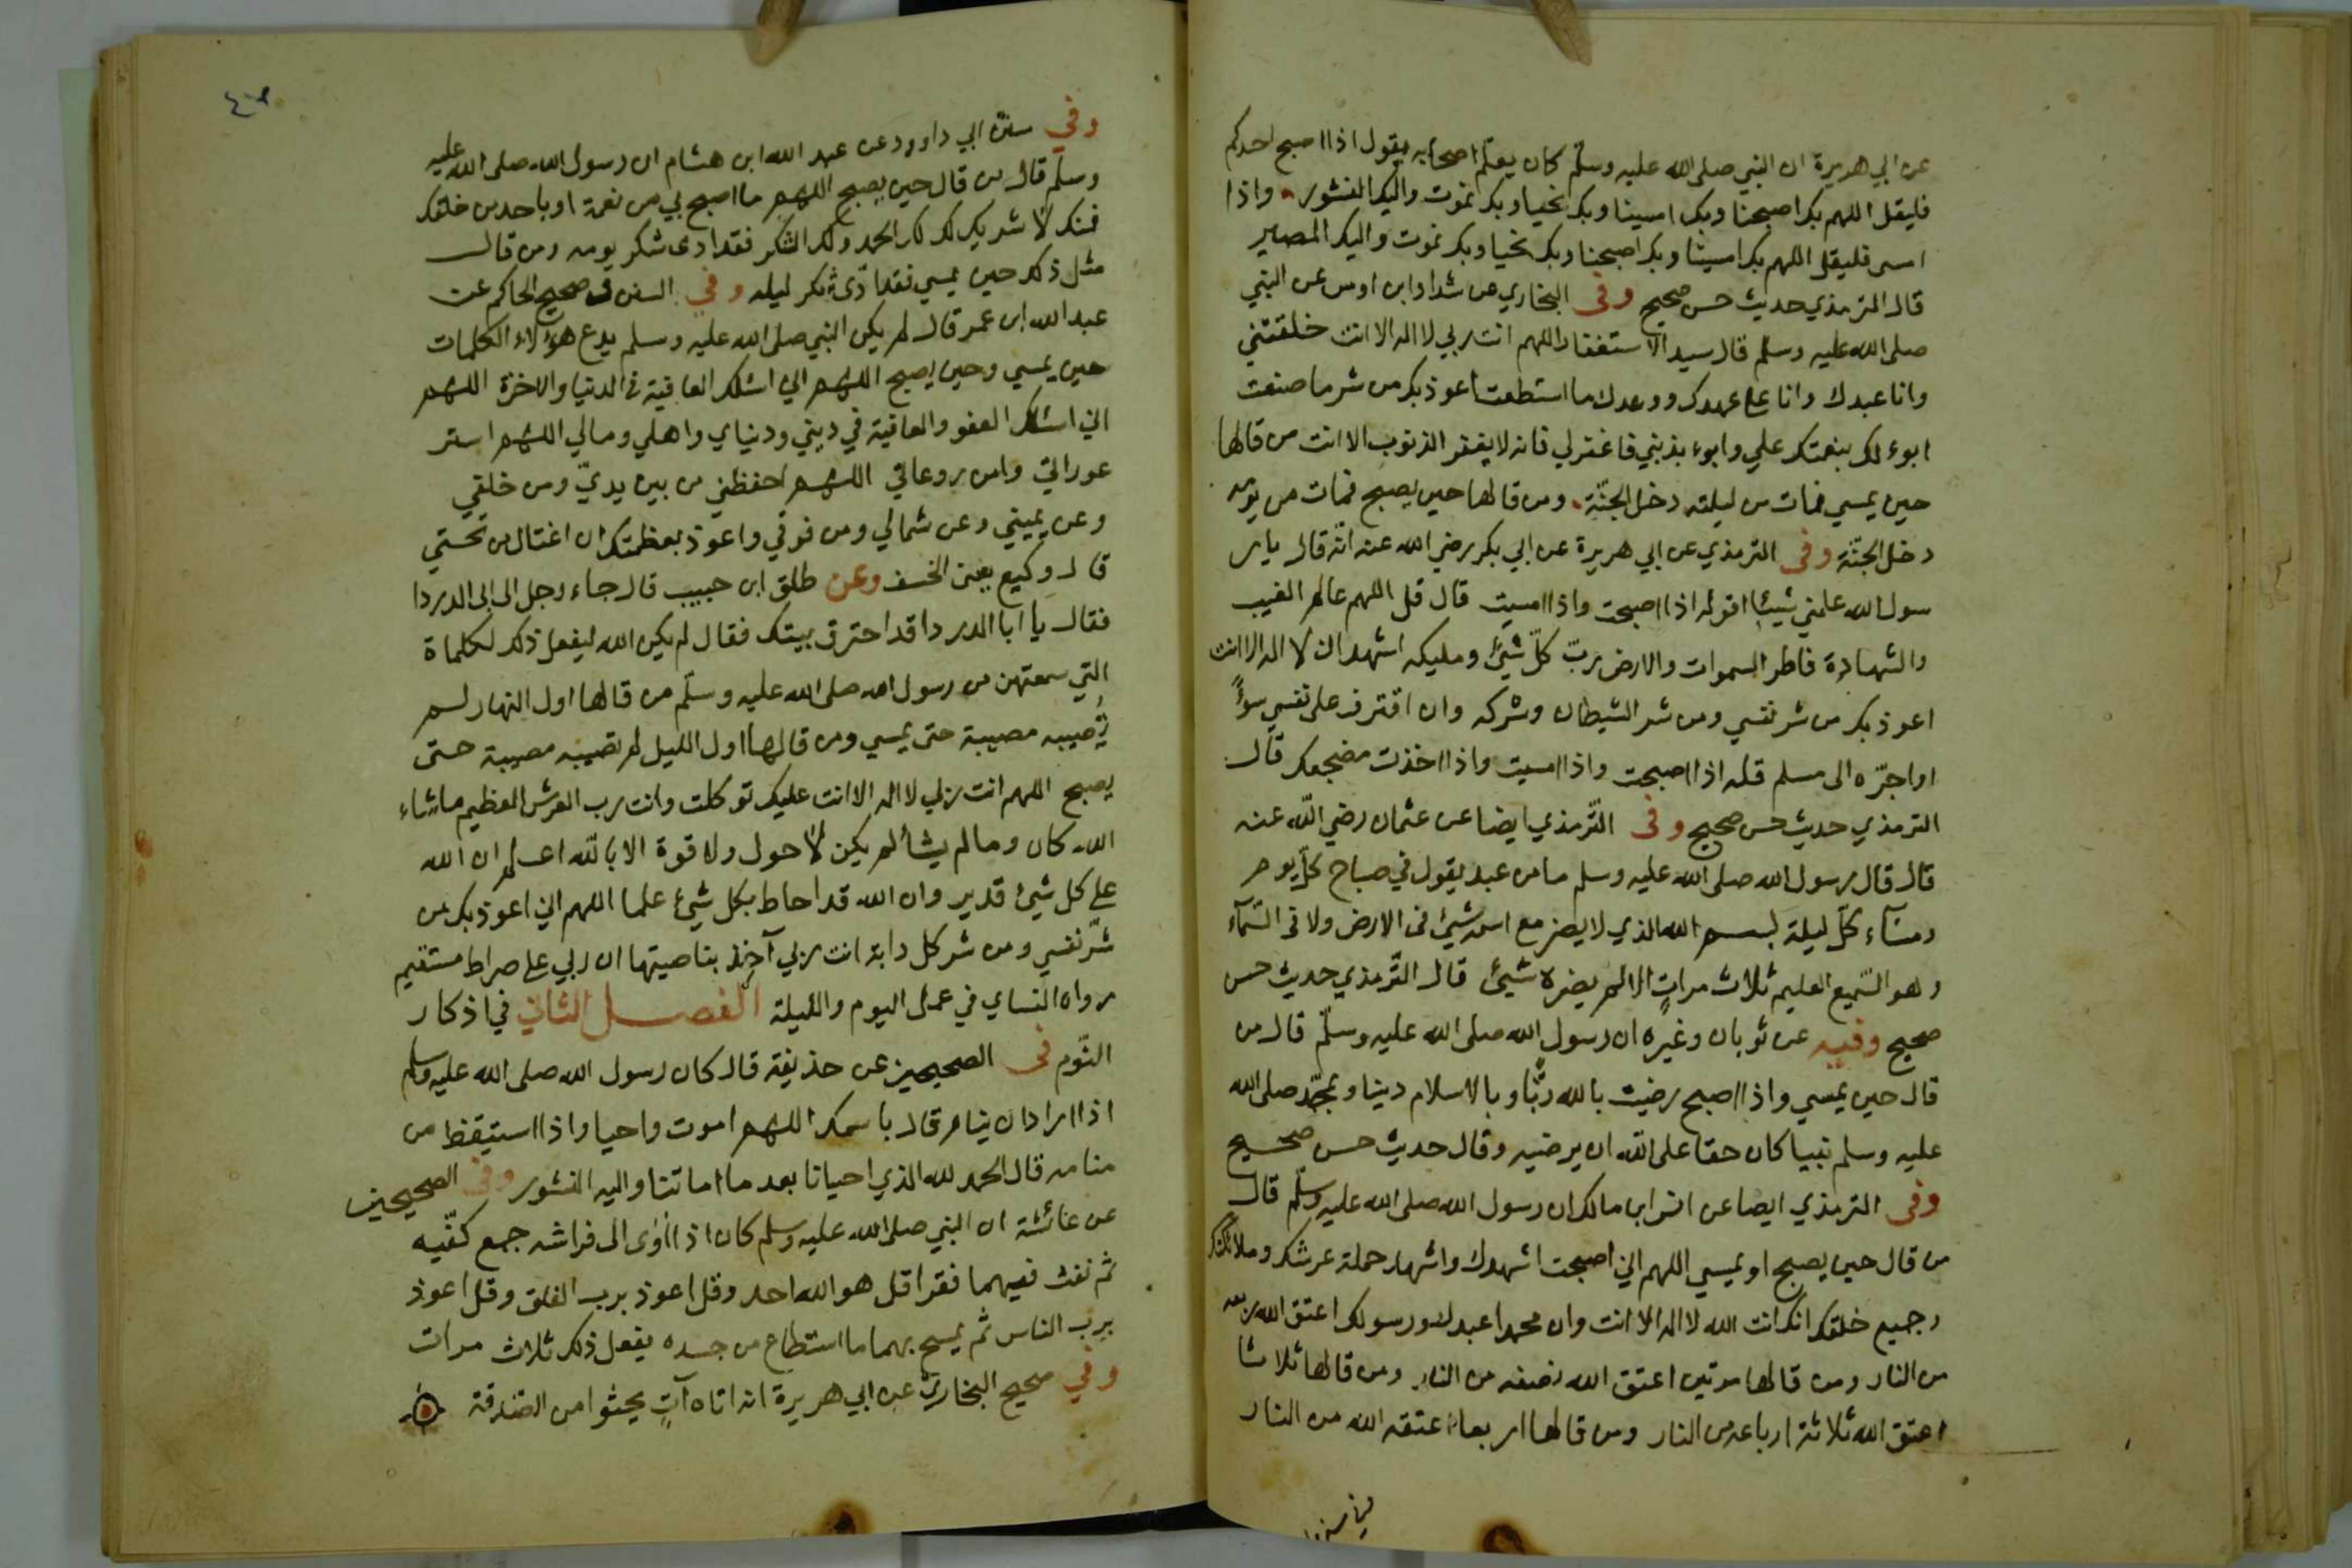 عن ابي هريرة ان النبي صلى الله عليه وسلم كان يعلم اصحابه يقول اذا اصبح احدكم
فليقل اللهم بك اصبحنا وبك امسينا وبك نحيا وبك نموت واليك النشور واذا
امسى فليقل اللهم بك امسينا وبك اصبحنا وبك نحيا وبك نموت واليك المصير
قال الترمذي حديث حسن صحيح وفى البخاري عن شداد ابن اوس عن النبي
صلى الله عليه وسلم قال سيد الاستغفار اللهم انت ربي لا اله الا انت خلقتني
وانا عبدك وانا على عهدك ووعدك ما استطعت اعوذ بك من شر ما صنعت
ابوء لك بنعمتك علي وابوء بذنبي فاغفر لي فانه لا يغفر الذنوب الا انت من قالها
حين يمسي فمات من ليلته دخل الجنّة ومن قالها حين يصبح فمات من يومه
دخل الجنّة وفى الترمذي عن ابي هريرة عن ابي بكر رضي الله عنه انّه قال يا ر
سول الله علمني شيئا اقوله اذا اصبحت واذا امسيت قال قل اللهم عالم الغيب
والشهادة فاطر السموات والارض ربّ كلّ شيئ ومليكه اشهد ان لا اله الا انت
اعوذ بك من شر نفسي ومن شر الشيطان وشركه وان اقترف على نفسي سوءً
او اجرّه الى مسلم قله اذا اصبحت واذا امسيت واذا اخذت مضجعك قال
الترمذي حديث حسن صحيح وفى التّرمذي ايضا عن عثمان رضي اللّه عنه
قال قال رسول الله صلى الله عليه وسلم ما من عبد يقول في صباح كلّ يوم
ومسآء كلّ ليلة بسم الله الذي لا يضر مع اسمه شيئ فى الارض ولا فى السّمآء
وهو السّميع العليم ثلاث مراتٍ الا لم يضره شيئ قال التّرمذي حديث حسن
صحيح وفيه عن ثوبان وغيره ان رسول الله صلى الله عليه وسلّم قال من
قال حين يمسي واذا اصبح رضيت بالله ربًّا وبالاسلام دينا وبمحمّد صلى الله
عليه وسلم نبيا كان حقا على اللّه ان يرضيه وقال حديث حسن صحيح
وفى الترمذي ايضا عن انس ابن مالك ان رسول الله صلى الله عليه وسلّم قال
من قال حين يصبح او يمسي اللهم اني اصبحت اشهدك واشهد حملة عرشك وملائكتك
وجميع خلقك انك انت الله لا اله الا انت وان محمدا عبدك ورسولك اعتق الله ربعه
من النار ومن قالها مرتين اعتق الله نصفه من النار ومن قالها ثلاثا
اعتق الله ثلاثة ارباعه من النار ومن قالها اربعا اعتقه الله من النار
وفي سنن ابي داوود عن عبد الله ابن هشام ان رسول الله صلى الله عليه
وسلم قال من قال حين يصبح اللهم ما اصبح بي من نعمة او باحد من خلقك
فمنك لا شريك لك لك الحمد ولك الشكر فقد ادى شكر يومه ومن قال
مثل ذلك حين يمسي فقد ادّى شكر ليله وفي السنن وصحيح الحاكم عن
عبد الله ابن عمر قال لم يكن النبي صلى الله عليه وسلم يدع هؤلاء الكلمات
حين يمسي وحين يصبح اللهم اني اسئلك العافية فى الدنيا والاخرة اللهم
اني اسئلك العفو والعافية في ديني ودنياي واهلي ومالي اللهم استر
عوراتي وامن روعاتي اللهم احفظني من بين يديّ ومن خلفي
وعن يميني وعن شمالي ومن فوقي واعوذ بعظمتك ان اغتال من تحتي
قال وكيع يعني الخسف وعن طلق ابن حبيب قال جاء رجل الى ابى الدردا
فقال يا ابا الدردا قد احترق بيتك فقال لم يكن الله ليفعل ذلك لكلماة
التي سمعتهن من رسول الله صلى الله عليه وسلّم من قالها اول النهار لم
تصيبه مصيبة حتى يمسي ومن قالها اول الليل لم تصيبه مصيبة حتى
يصبح اللهم انت ربي لا اله الا انت عليك توكلت وانت رب العرش العظيم ما شاء
الله كان وما لم يشأ لم يكن لا حول ولا قوة الا باللّه اعلم ان الله
على كل شيئ قدير وان الله قد احاط بكل شيئ علما اللهم اني اعوذ بك من
شرّ نفسي ومن شر كل دابة انت ربي آخذ بناصيتها ان ربي على صراط مستقيم
رواه النساي في عمل اليوم والليلة الفصل الثاني في اذكار
النّوم فى الصحيحين عن حذيفة قال كان رسول الله صلى الله عليه وسلم
اذا اراد ان ينام قال باسمك اللهم اموت واحيا واذا استيقظ من
منامه قال الحمد لله الذي احيانا بعد ما اماتنا واليه النشور وفى الصحيحين
عن عائشة ان النبي صلى الله عليه وسلم كان اذا اوى الى فراشه جمع كفّيه
ثم نفث فيهما فقرا قل هو الله احد وقل اعوذ برب الفلق وقل اعوذ
برب الناس ثم يمسح بهما ما استطاع من جسده يفعل ذلك ثلاث مرات
وفي صحيح البخاري عن ابي هريرة انه اتاه آتٍ يحثوا من الصّدقة